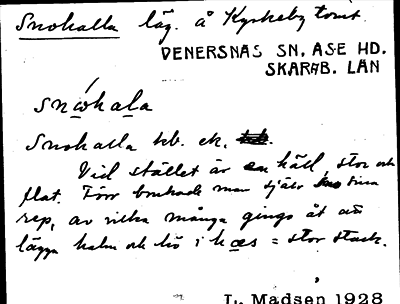 Snohalla läg. å Kyrkeby tomt.
VENERSNÄS SN. ÅSE HD.
SKARAB. LÄN
snóhala
Snohalla hb. ek.
Vid stället är en häll, stor och
flat. Förr brukade man själv sno sina
rep, av vilka många gingo åt att
lägga halm och hö i hæs = stor stack.
L. Madsen 1928